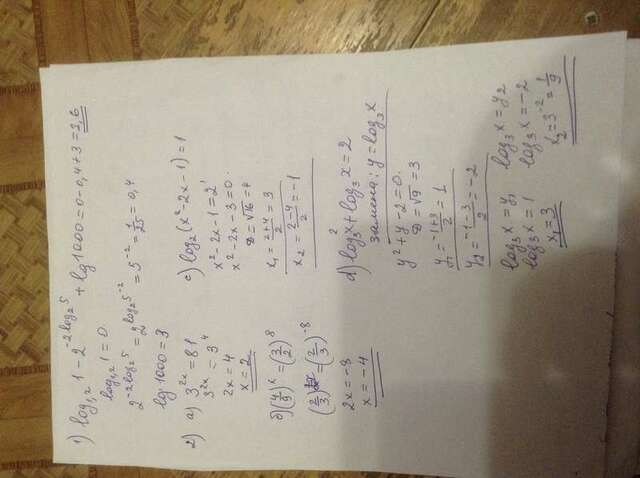 1) log₁,₂ 1 - 2^(-2log₂5) + lg 1000 = 0 - 0,4 + 3 = 2,6
log₁,₂ 1 = 0
2^(-2log₂5) = 2^(log₂5⁻²) = 5⁻² = 1/25 = 0,4
lg 1000 = 3
2) a) 3^(2x) = 81
3^(2x) = 3⁴
2x = 4
x = 2
б) (4/9)^x = (3/2)^8
(2/3)^(2x) = (2/3)^(-8)
2x = -8
x = -4
c) log₂(x²-2x-1) = 1
x²-2x-1 = 2¹
x²-2x-3 = 0
D = √16 = 4
x₁ = (2+4)/2 = 3
x₂ = (2-4)/2 = -1
d) log₃²x + log₃x = 2
замена: y = log₃x
y² + y - 2 = 0
D = √9 = 3
y₁ = (-1+3)/2 = 1
y₂ = (-1-3)/2 = -2
log₃x = y₁
log₃x = 1
x₁ = 3
log₃x = y₂
log₃x = -2
x₂ = 3⁻² = 1/9